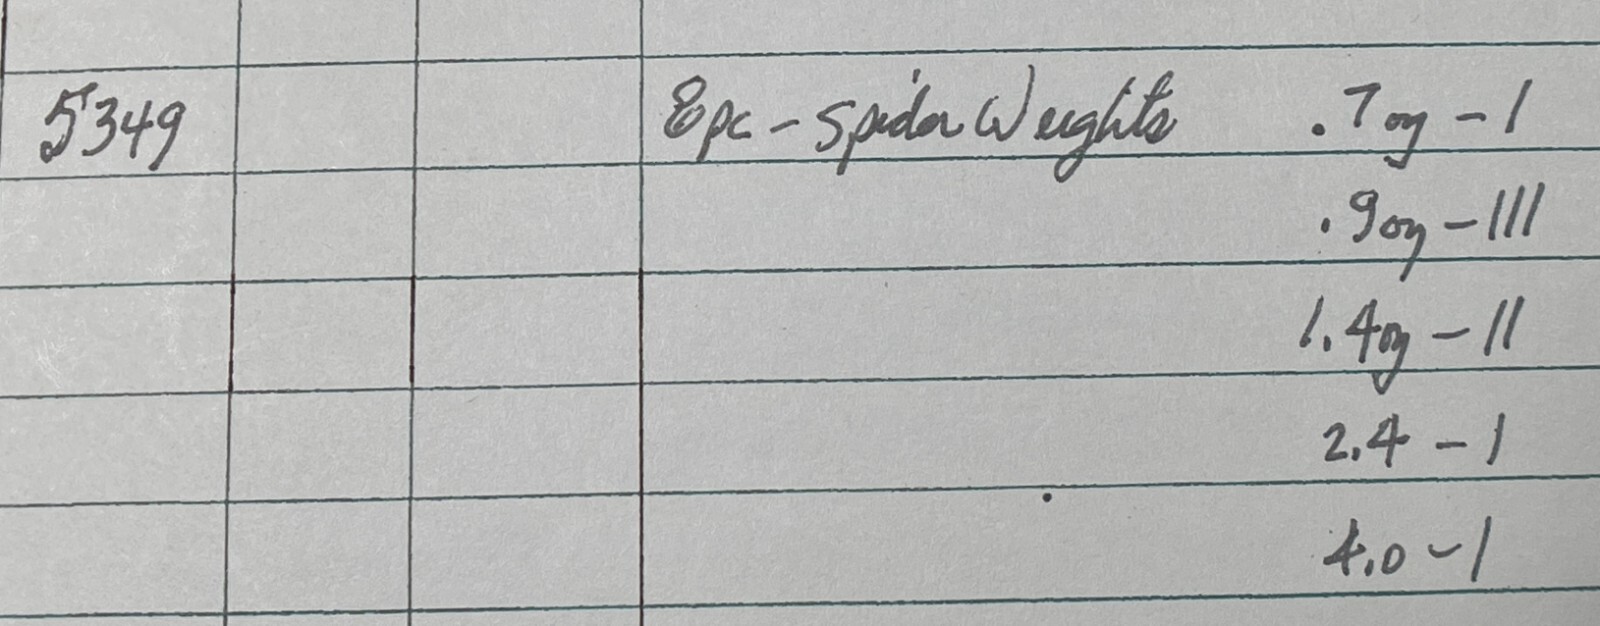 5349 8pc - Spider Weights .7oz - I
.9oz - III
1.4oz - II
2.4 - I
4.0 - I